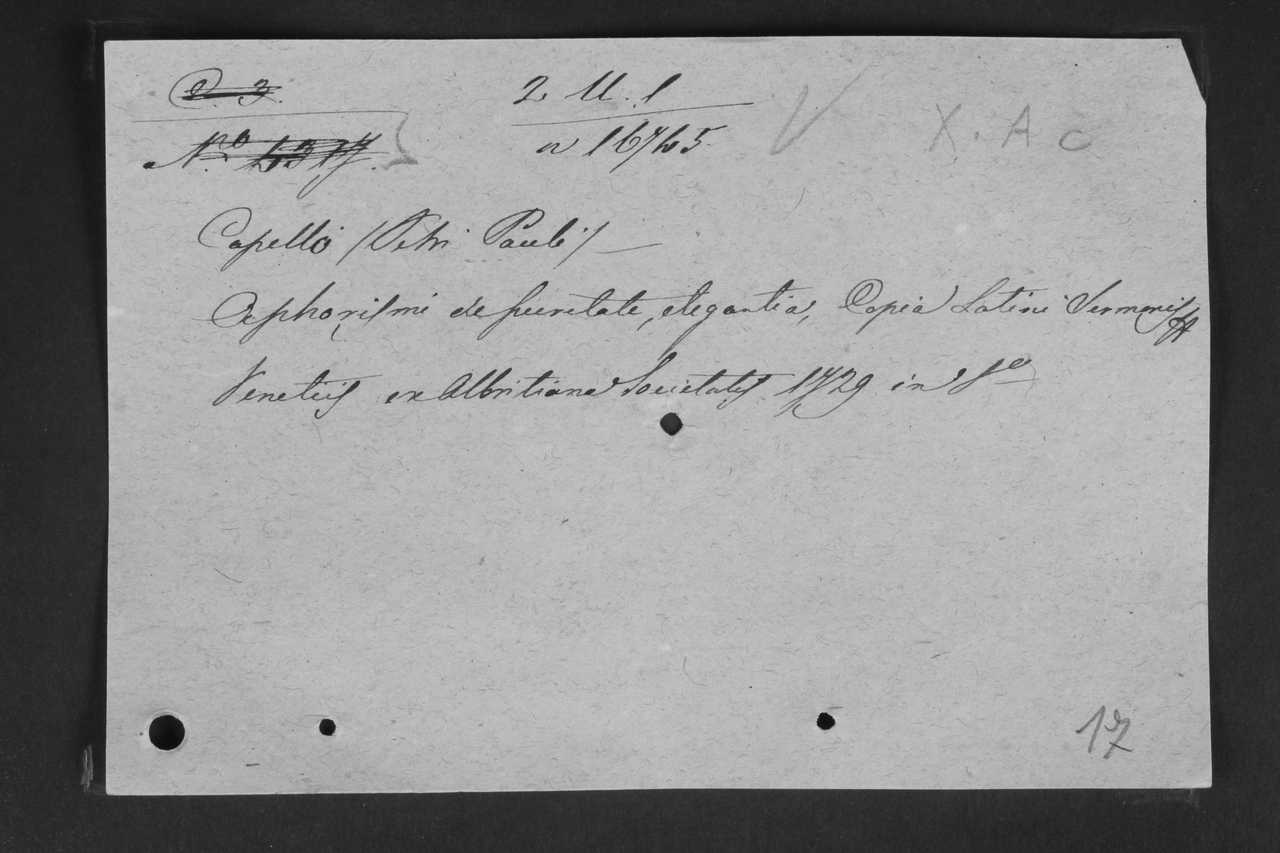 2 U. 1
a 16745
X. A c
Capello /Petri Pauli/ —
Aphorismi de puritate, elegantia, Copia Latini Sermonis
Venetiis ex Albritiana Societatis 1729 in 8o
17